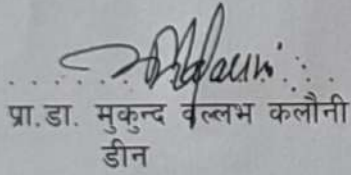 प्रा.डा. मुकुन्द वल्लभ कलौनी
डीन